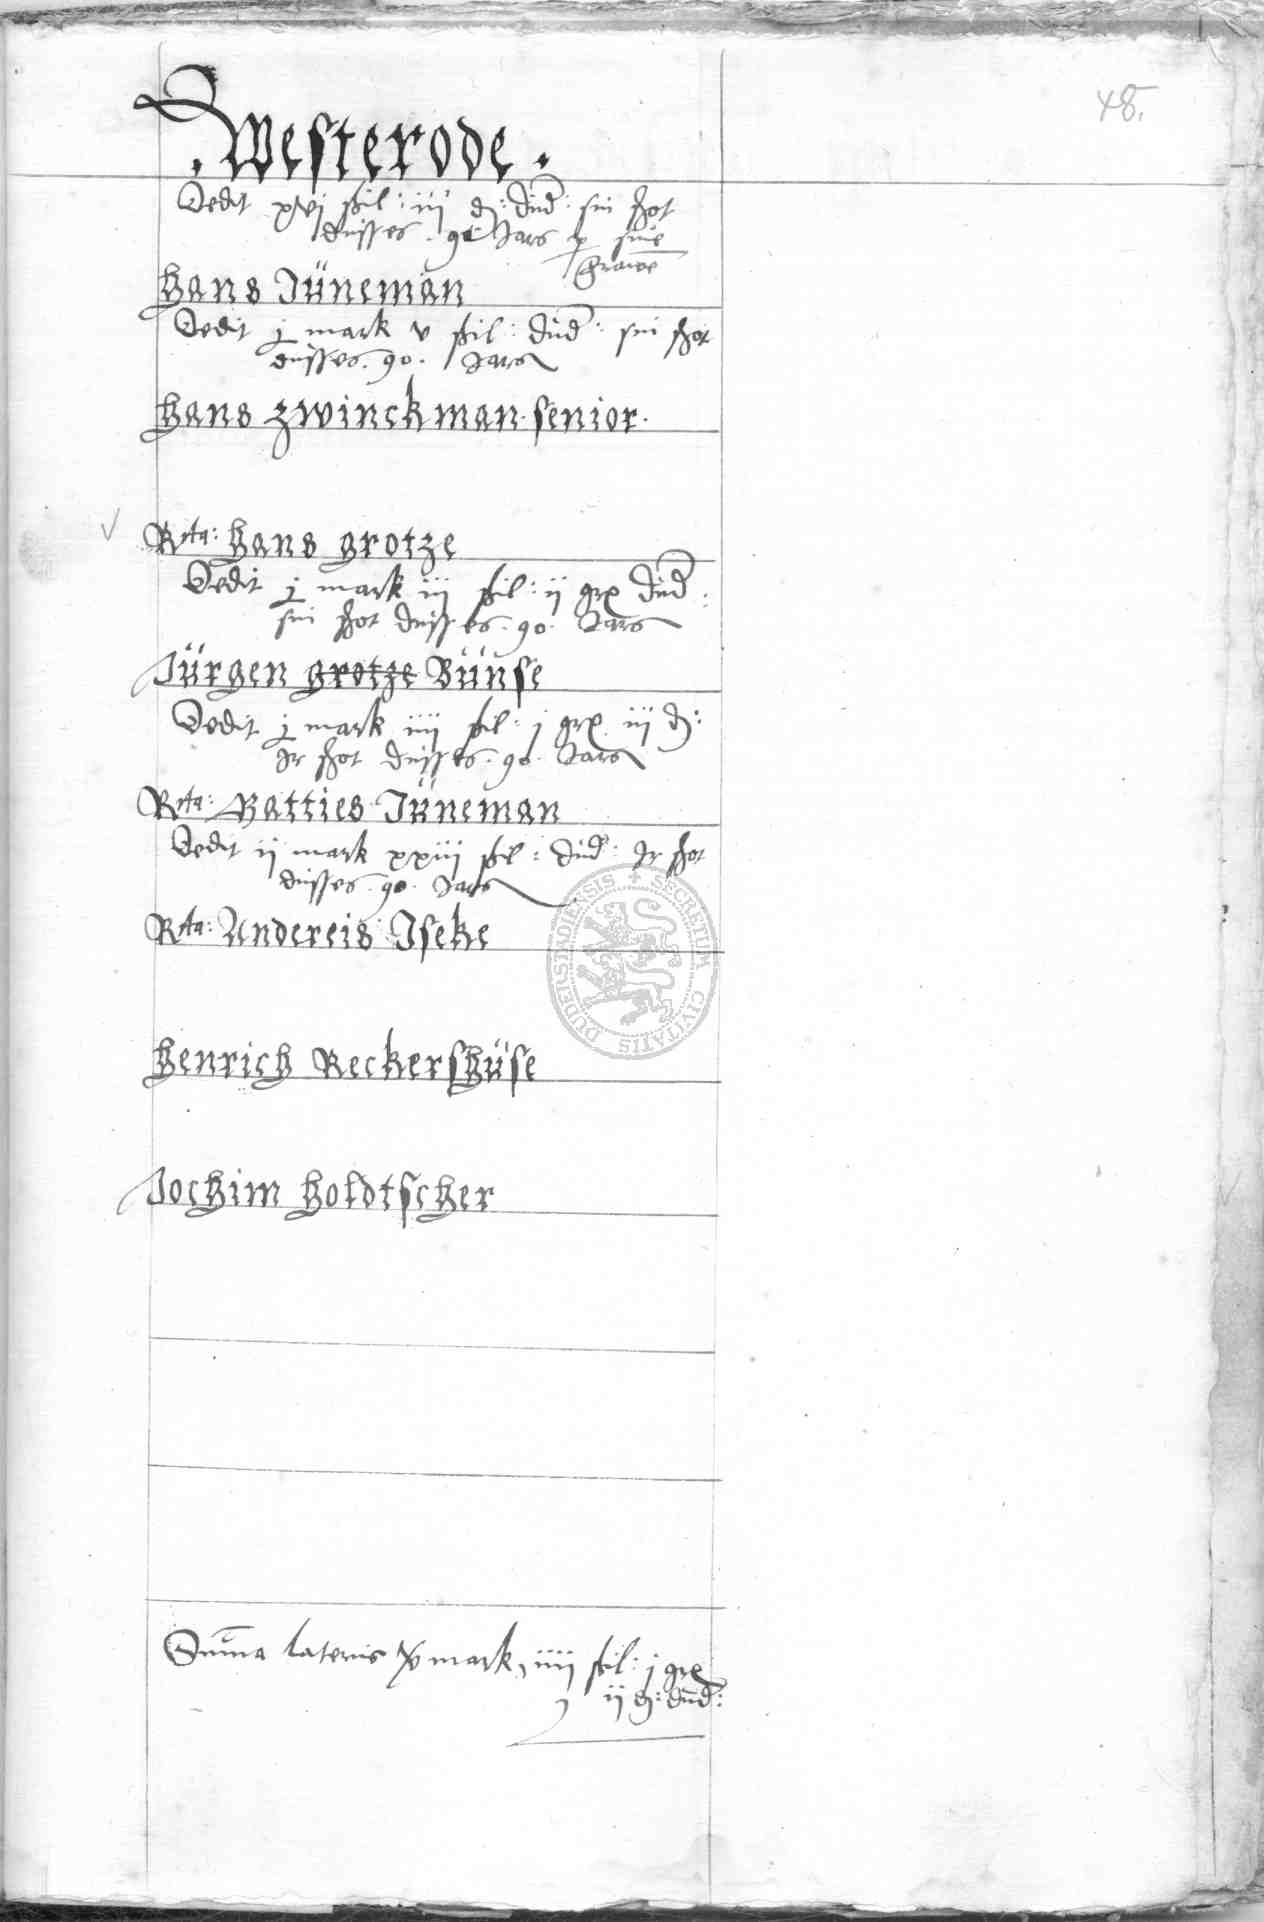 48.
. Westerode .
Dedit xvj ßil : iij ₰ : dud : sin shot
dusses . 90 Jars p sine
frawe
Hans Jüneman
Dedit j mark v ßil : dud : sin shot
dusses . 90 . Jars
Hans Zwinckman . senior .
Rta : Hans grotze
Dedit j mark iij ßil : ij grx dud :
sin shot dusses . 90 . Jars
Jürgen grotze Bünse
Dedit j mark iiij ßil : j grx iij ₰ :
Jr shot dusses . 90 . Jars
Rta : Batties Jüneman
Dedit ij mark xxiij ßil : dud : Jr shot
dusses . 90 . Jars
Rta : Andereis Iseke
Henrich Reckershüse
Jochim Holdtscher
Suma lateris mark, iiij ßil : j grx
ij ₰ : dud :
SECRETUM CIVITATIS DUDERSTADIENSIS